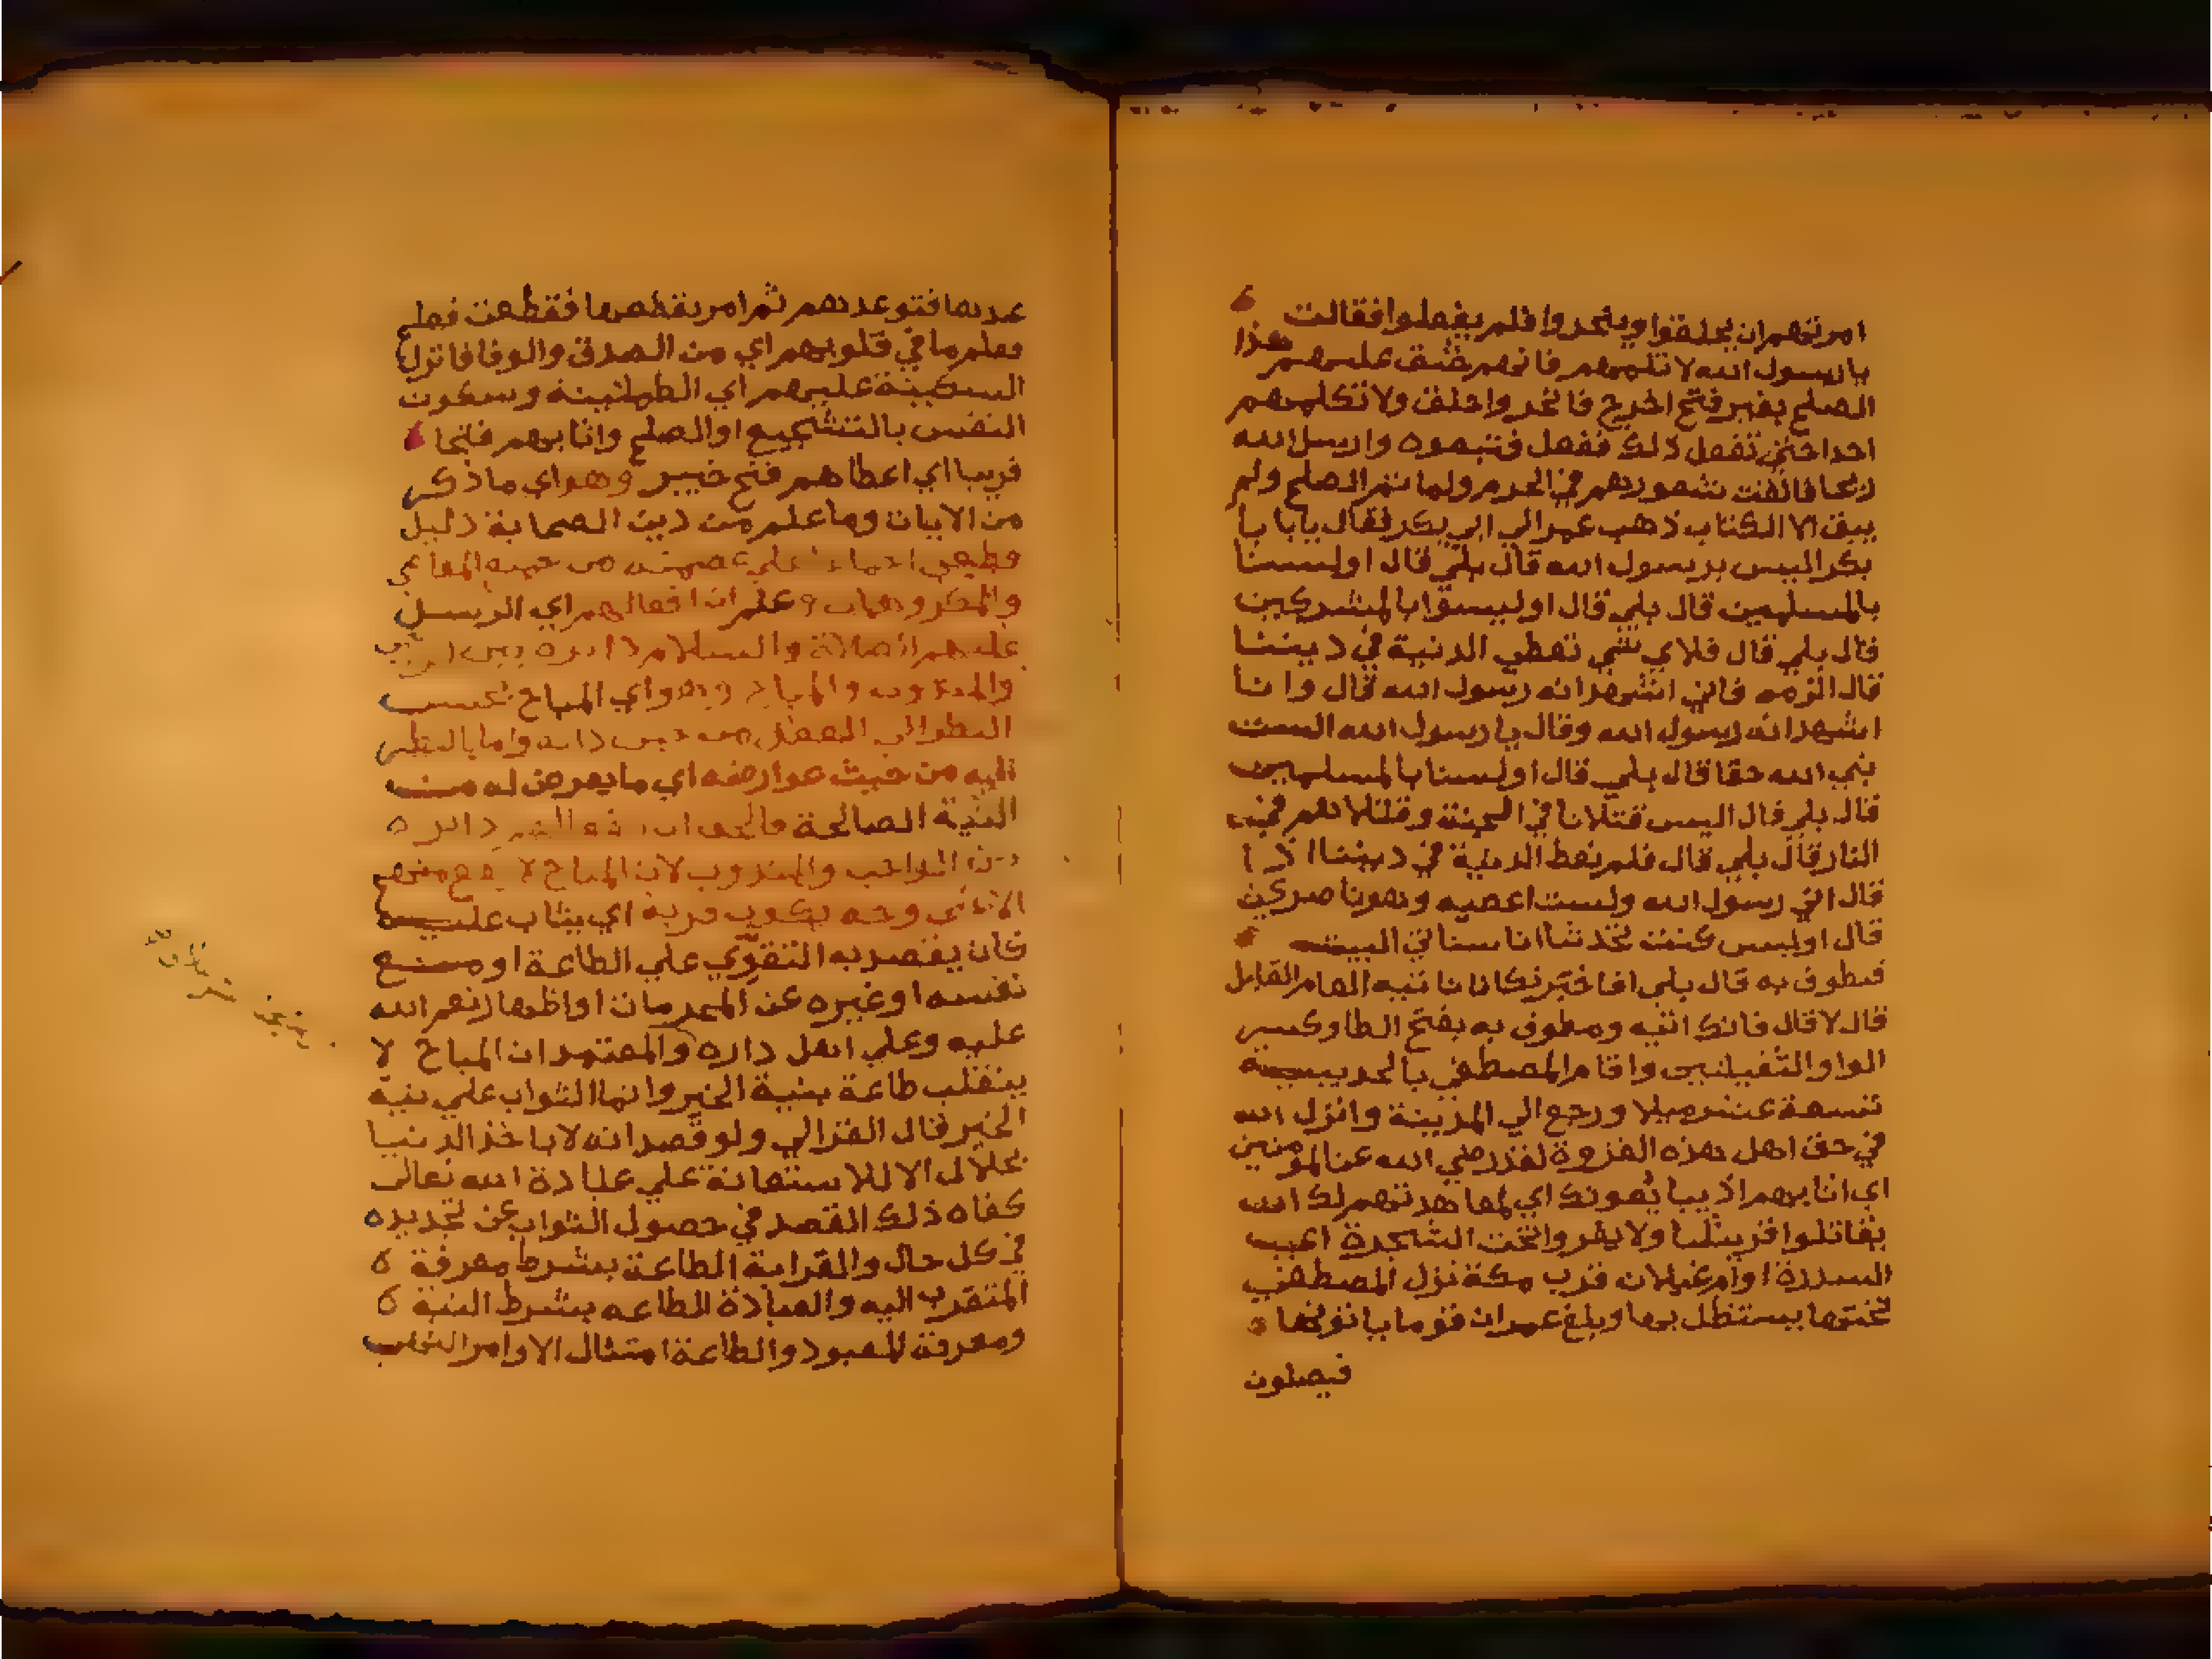 امرتهم ان يحلقوا وينحروا فلم يفعلوا فقالت
يا رسول الله لا تلمهم فانهم شق عليهم هذا
الصلح بغير فتح اخرج فانحر واحلق ولا تكلم منهم
احدا حتي تفعل ذلك ففعل فتبعوه وارسل الله
ريحا فالقت شعورهم في الحرم ولما تم الصلح ولم
يبق الا الكتاب ذهب عمر الي ابي بكر فقال يا ابا
بكر اليس برسول الله قال بلي قال اولسنا
بالمسلمين قال بلي قال اوليسوا بالمشركين
قال بلي قال فلاي شي نعطي الدنية في ديننا
قال الزمه فاني اشهد انه رسول الله قال وانا
اشهد انه رسول الله وقال يا رسول الله الست
نبي الله حقا قال بلي قال اولسنا بالمسلمين
قال بلي قال اليس قتلانا في الجنة وقتلاهم في
النار قال بلي قال فلم نعط الدنية في ديننا اذا
قال اني رسول الله ولست اعصيه وهو ناصري
قال اوليس كنت تحدثنا انا سناتي البيت
فنطوف به قال بلي افاخبرتك انا ناتيه العام القابل
قال لا قال فانك اتيه ومطوف به بفتح الطا وكسر
الواو الثقيلتين واقام المصطفي بالحديبية
تسعة عشر ميلا ورجع الي المدينة وانزل الله
في حق اهل هذه الغزوة لقد رضي الله عن المومنين
اي اثابهم اذ يبايعونك اي لمعاهدتهم لك ان
يقاتلوا قريشا ولا يفروا تحت الشجرة اعني
السدرة او ام غيلان قرب مكة نزل المصطفي
تحتها يستظل بها وبلغ عمر ان قوما ياتونها
فيصلون
عندها فتوعدهم ثم امر بقطعها فقطعت فعلم
فعلم ما في قلوبهم اي من الصدق والوفا فانزل
السكينة عليهم اي الطمانينة وسكون
النفس بالتشجيع او الصلح واثابهم فتحا
قريبا اي اعطاهم فتح خيبر وهو اي ما ذكر
من الايات وما علم من دين الصحابة دليل
قطعي علي عصمته من جميع المعاصي
والمكروهات وعلم ان افعالهم اي الرسل
عليهم الصلاة والسلام دايرة بين الواجب
والمندوب والمباح وهو اي المباح بحسب
النظر الي الفعل من حيث ذاته واما بالنظر
اليه من حيث عوارضه اي ما يعرض له من
النية الصالحة فالحق ان دايرة
بين الواجب والمندوب لان المباح لا يقع منهم
الا علي وجه يكون قربة اي يثاب عليه
كان يقصد به التقوي علي الطاعة او منع
نفسه او غيره عن المحرمات او اظهار نعم الله
عليه وعلي اهل داره والمعتمد ان المباح لا
ينقلب طاعة بنية الخير وانما الثواب علي نية
الخير قال الغزالي ولو قصد انه لا ياخذ الدنيا
بحلال الا للاستعانة علي عبادة الله تعالي
كفاه ذلك القصد في حصول الثواب عن تجديده
في كل حال والقرابة الطاعة بشرط معرفة
المتقرب اليه والعبادة الطاعه بشرط النية
ومعرفة المعبود والطاعة امتثال الاوامر